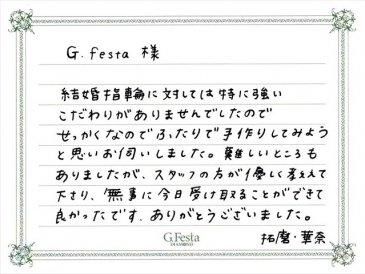 G.festa 様
結婚指輪に対しては特に強い
こだわりがありませんでしたので
せっかくなのでふたりで手作りしてみよう
と思いお伺いしました。難しいところも
ありましたが、スタッフの方が優しく教えて
下さり、無事に今日受け取ることができて
良かったです。ありがとうございました。
G.Festa
DIAMOND
拓磨・華奈